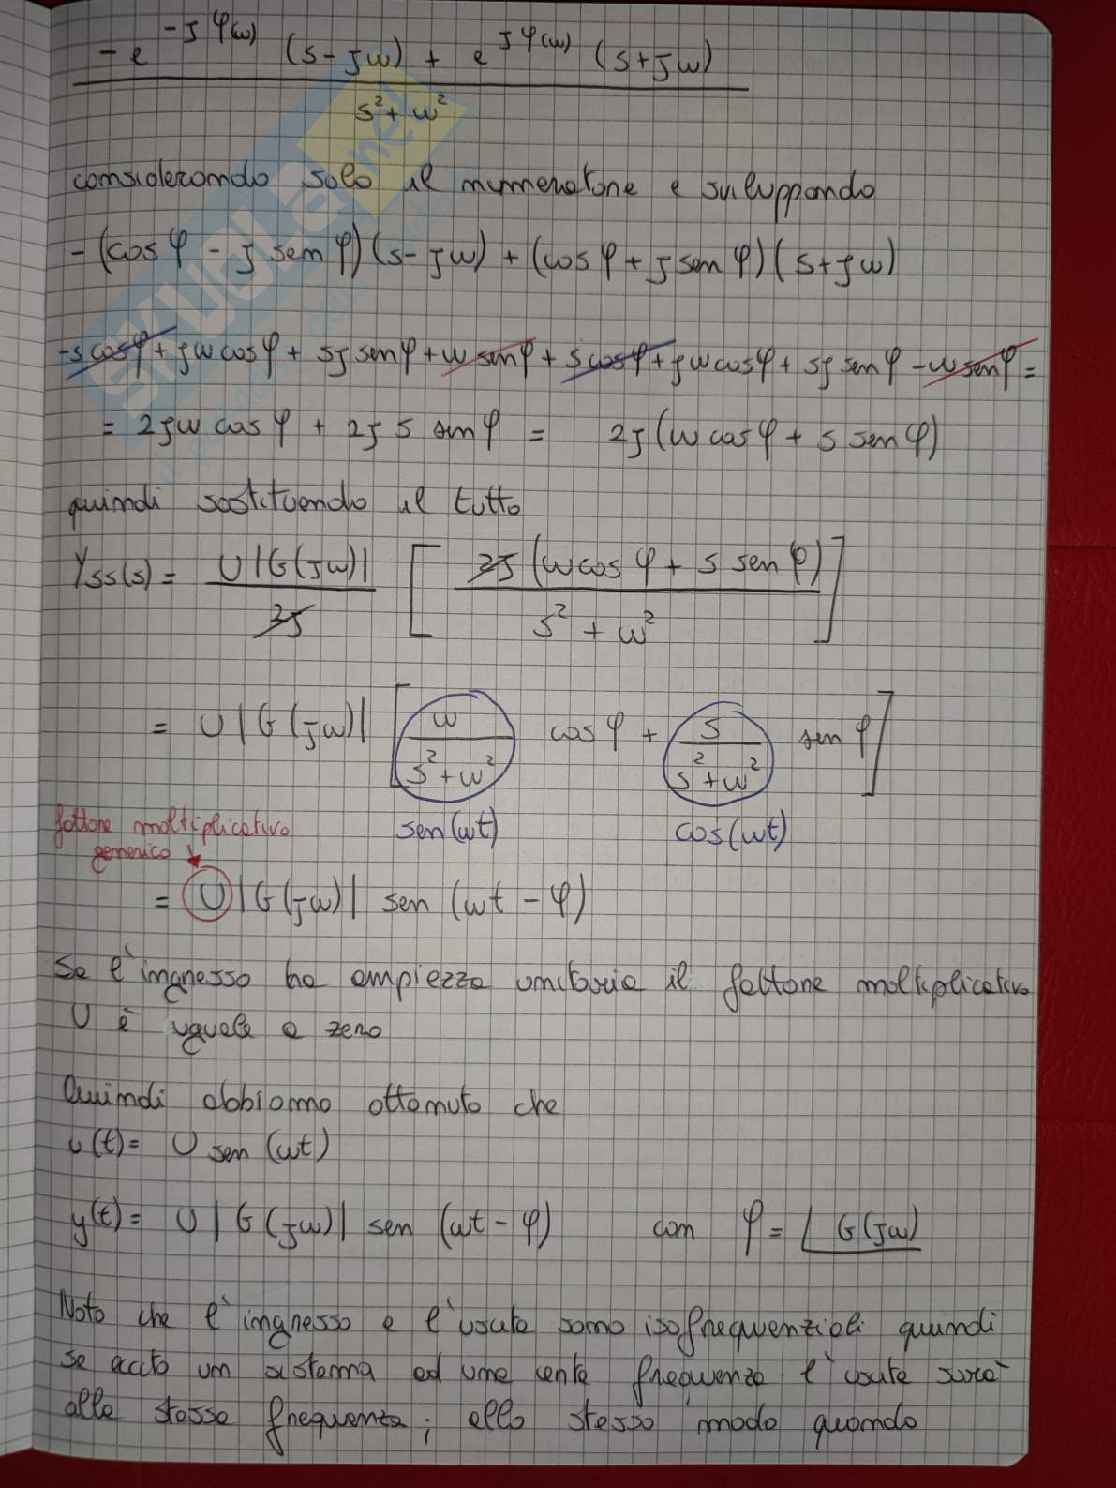 -e^{-jφ(ω)} (s-jω) + e^{jφ(ω)} (s+jω)
s²+ω²
considerando solo il numeratore e sviluppando
-(cos φ - j sen φ)(s-jω) + (cos φ + j sen φ)(s+jω)
-s cosφ + jω cosφ + sj senφ + ω senφ + s cosφ + jω cosφ + sj senφ - ω senφ =
= 2jω cos φ + 2j s sen φ = 2j(ω cosφ + s sen φ)
quindi sostituendo il tutto
Yss(s) = U|G(jω)| / 2j [ 2j (ω cos φ + s sen φ) / s² + ω² ]
= U |G(jω)| [ ω / s²+ω² cos φ + s / s²+ω² sen φ ]
sen(ωt) cos(ωt)
fattore moltiplicativo
generico
= U |G(jω)| sen (ωt - φ)
Se l'ingresso ha ampiezza unitaria il fattore moltiplicativo
U è uguale a zero
Quindi abbiamo ottenuto che
u(t) = U sen (ωt)
y(t) = U |G(jω)| sen (ωt - φ) con φ = ∠G(jω)
Noto che l'ingresso e l'uscita sono isofrequenziali quindi
se eccito un sistema ad una certa frequenza l'uscita sarà
alla stessa frequenza; allo stesso modo quando
SKUOLA.net